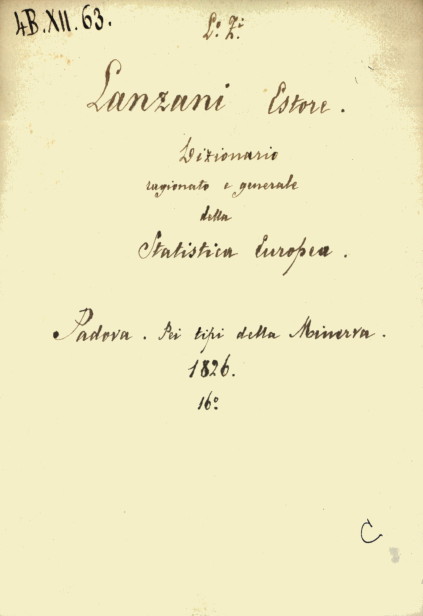 4B.XII.63.
Lanzani Estore.
Dizionario
ragionato e generale
della
Statistica Europea.
Padova. Pei tipi della Minerva.
1826.
16º
C